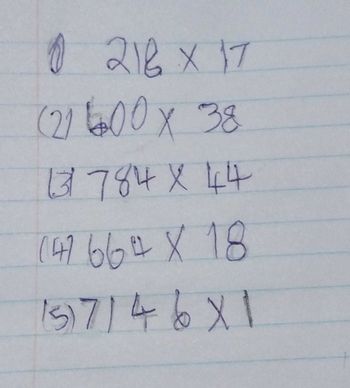 (1) 218 X 17
(2) 600 X 38
(3) 784 X 44
(4) 664 X 18
(5) 7146 X 1